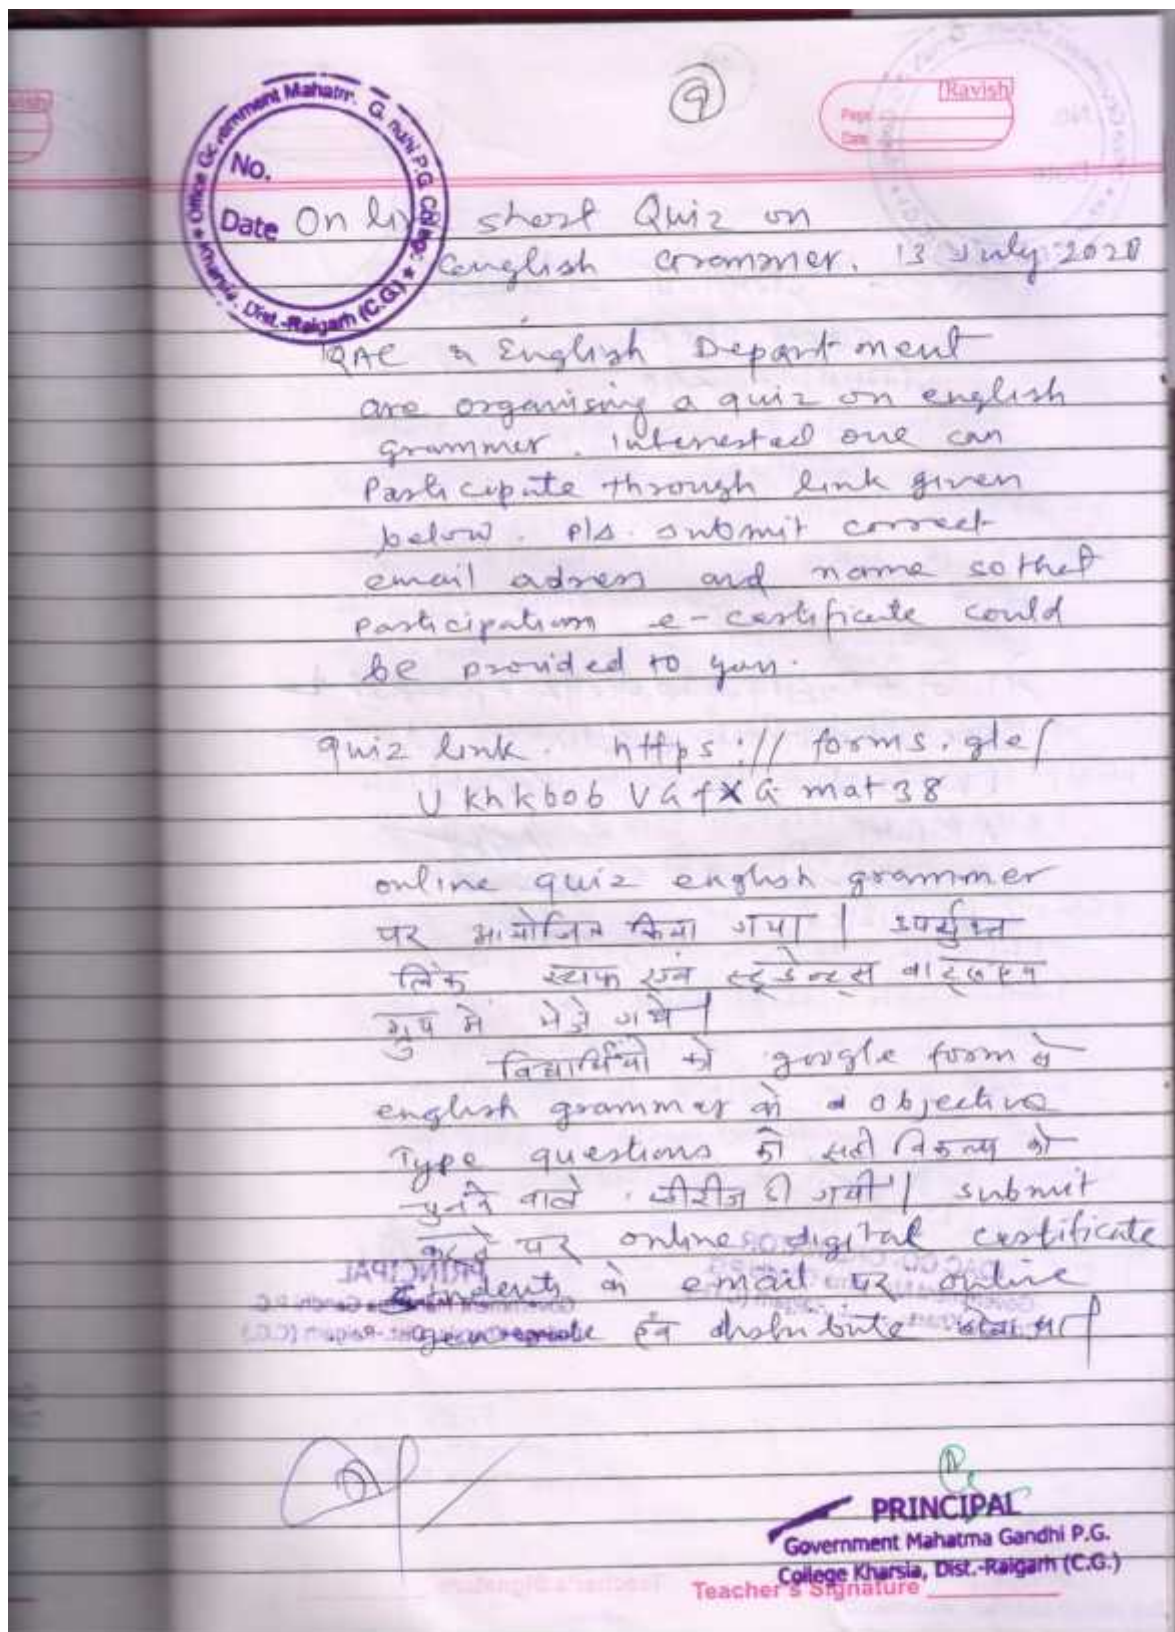 Office Government Mahatm. G. ndhi P.G. College
Kharsia, Dist.-Raigarh (C.G.)
No.
Date
9
Ravish
Page
Date
On line short Quiz on
english Grammer. 13 July 2020
IQAC & English Department
are organising a quiz on english
grammer. interested one can
Participate through link given
below. pls. submit correct
email adress and name so that
participation e-certificate could
be provided to you.
quiz link. https://forms.gle/
UkhkbobVGfXGmat38
online quiz english grammer
पर आयोजित किया गया | उपर्युक्त
लिंक स्टाफ एवं स्टूडेन्ट्स वाट्सएप
ग्रुप में भेजे गये |
विद्यार्थियों को google form से
english grammer के objective
Type questions के सही विकल्प को
चुनने वाले सीरीज दी गयी | submit
करने पर online digital certificate
students के email पर online
एवं distribute
PRINCIPAL
Government Mahatma Gandhi P.G.
College Kharsia, Dist.-Raigarh (C.G.)
Teacher's Signature